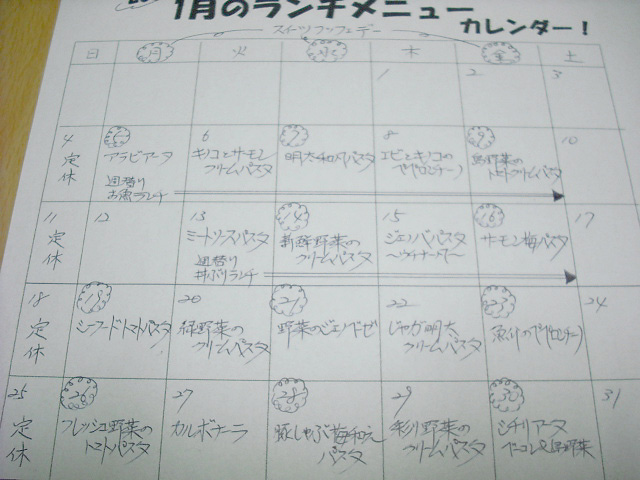 1月のランチメニュー
カレンダー!
スイーツブッフェデー
日 月 火 水 木 金 土
1 2 3
4 5 6 7 8 9 10
定休
アラビアータ
週替り
お魚ランチ
キノコとサーモン
クリームパスタ
明太和风パスタ
エビとキノコの
ペペロンチーノ
クリームパスタ
11 12 13 14 15 16 17
定休
ミートソースパスタ
週替り
丼ぶりランチ
新鮮野菜の
クリームパスタ
ジェノバパスタ
サーモン梅パスタ
18 19 20 21 22 23 24
定休
シーフードトマトパスタ
緑野菜の
クリームパスタ
野菜のジェノベーゼ
じゃが明太
クリームパスタ
ペペロンチーノ
25 26 27 28 29 30 31
定休
フレッシュ野菜の
トマトパスタ
カルボナーラ
豚しゃぶ梅和え
パスタ
彩り野菜の
クリームパスタ
シチリアーナ